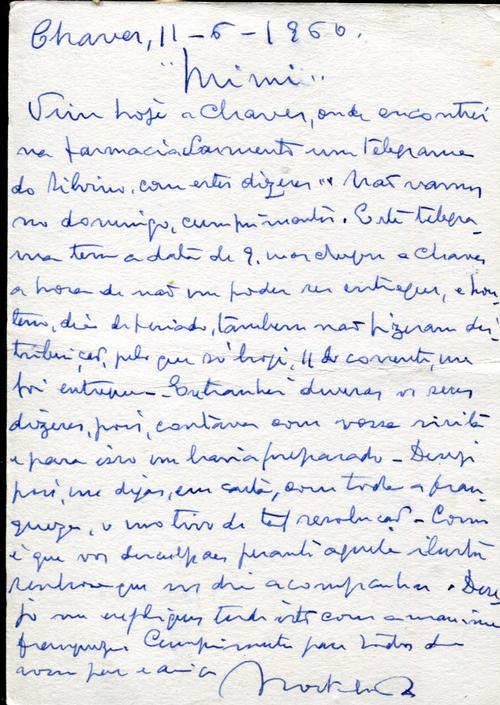 Chaves, 11-6-1960.
"Mimi"
Vim hoje a Chaves, onde encontrei
na farmacia Sarmento um telegrama
do Silvino, com estes dizeres "Não vamos
no domingo, cumprimentos. Este telegra-
ma tem a data de 9, mas chegou a Chaves
a hora de não me poder ser entregue, e hon-
tem, dia feriado, tambem não fizeram dis-
tribuição, pelo que só hoje, 11 do corrente, me
foi entregue - Extranhei diversas os seus
dizeres, pois, contava com vossa visita
e para isso me havia preparado - Desejo
pois, me digas, em carta, com toda a fran-
queza, o motivo de tal resolução - Como
é que vos desculpaes perante aquela ilustre
senhora que vos devia acompanhar. Dese-
jo me expliques tudo isto com a maxima
franqueza. Cumprimentos para todos do
vosso pae e amigo